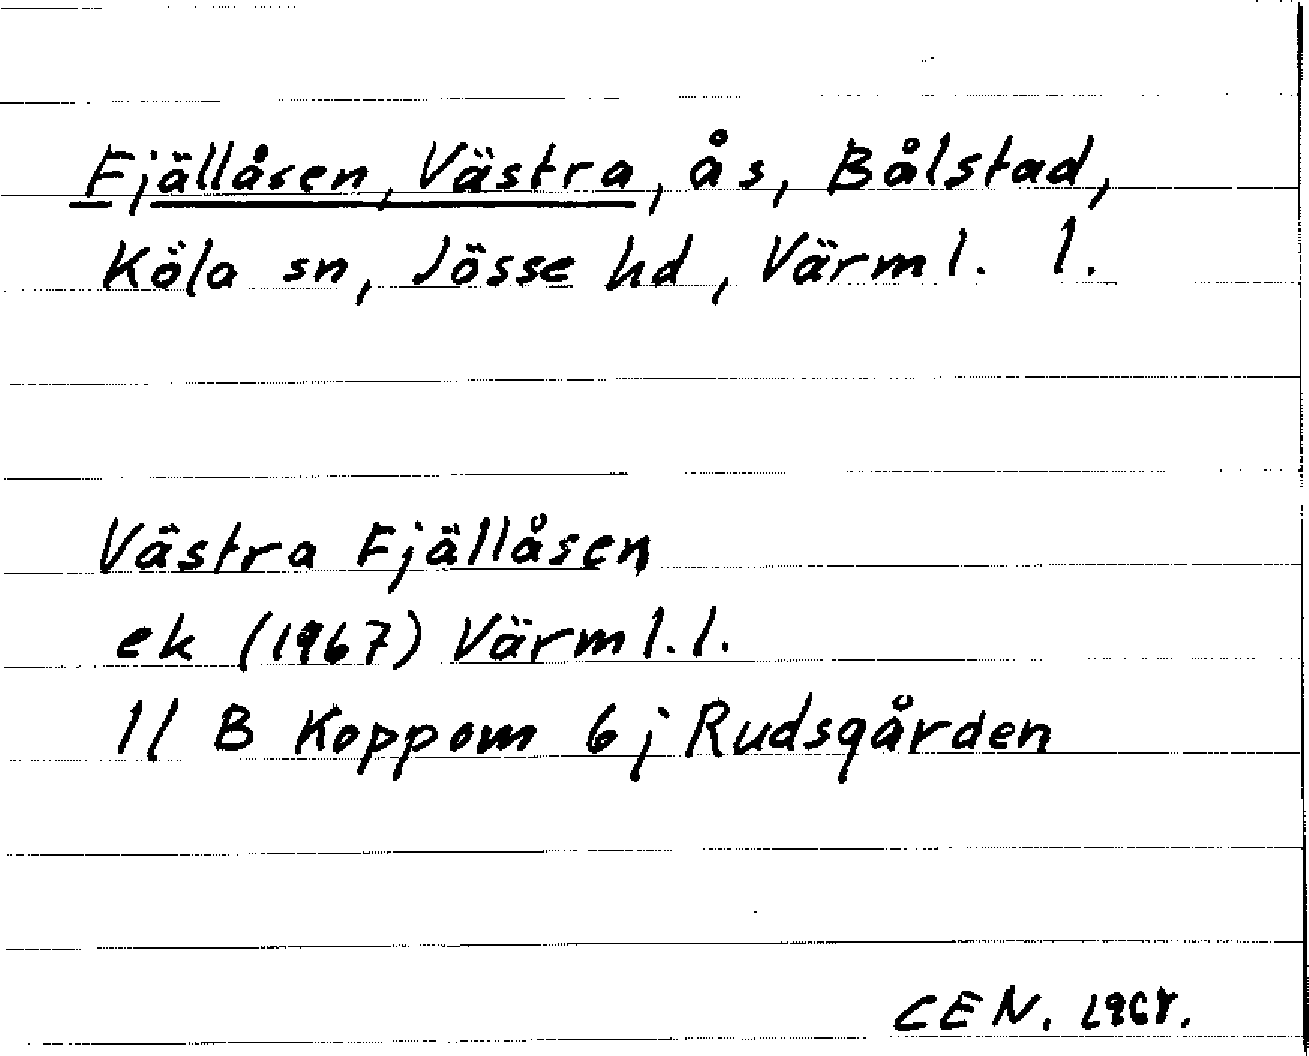 Fjällåsen, Västra, ås, Bålstad,
Köla sn, Jösse hd, Värml. l.
Västra Fjällåsen
ek (1967) Värml.l.
11 B Koppom 6j Rudsgården
CEN. 1968.